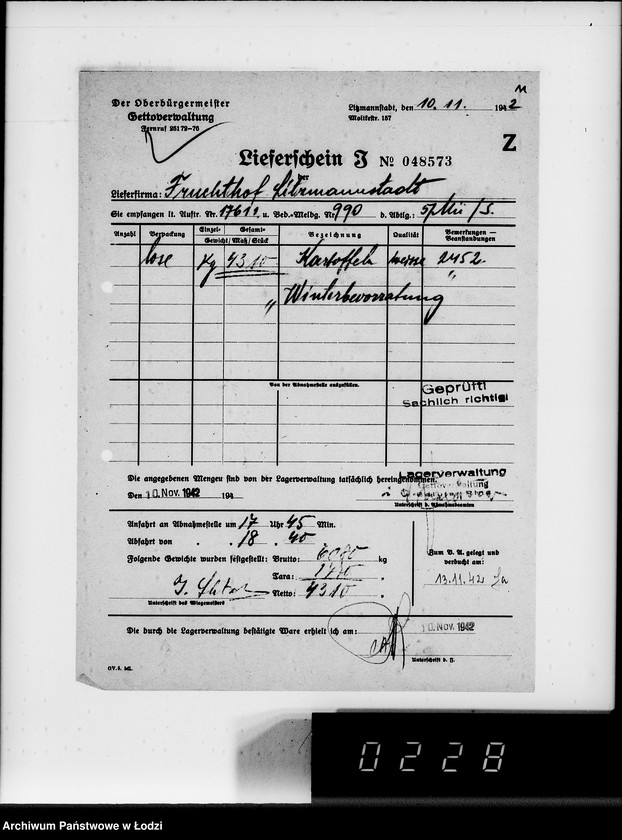 Der Oberbürgermeister
Gettoverwaltung
Fernruf 25179-76
Litzmannstadt, den 10. 11. 1942
Moltkestr. 157
Z
Lieferschein J № 048573
der
Lieferfirma: Fruchthof Litzmannstadt
Sie empfangen lt. Auftr. Nr. 17611 u. Bed.-Meldg. Nr. 990 d. Abtlg.:
Anzahl Verpackung Einzel- Gesamt- Gewicht/Maß/Stück Bezeichnung Qualität Bemerkungen — Beanstandungen
lose Kg 4310 Kartoffeln 2452
" Winterbevorratung "
Von der Abnahmestelle auszufüllen.
Geprüft!
Sachlich richtig!
Die angegebenen Mengen sind von der Lagerverwaltung tatsächlich hereingenommen.
Lagerverwaltung
Gettoverwaltung
Den 10. Nov. 1942 194
Unterschrift d. Abnahmebeamten
Anfahrt an Abnahmestelle um 17 Uhr 45 Min.
Abfahrt von " " 18 " 40 "
Folgende Gewichte wurden festgestellt: Brutto: kg
Tara: "
Netto: 4310 "
Unterschrift des Wiegemeisters
Zum B. A. gelegt und
verbucht am:
13.11.42
Die durch die Lagerverwaltung bestätigte Ware erhielt ich am: 10. Nov. 1942
Unterschrift d. J.
GV. 8.
0228
Archiwum Państwowe w Łodzi